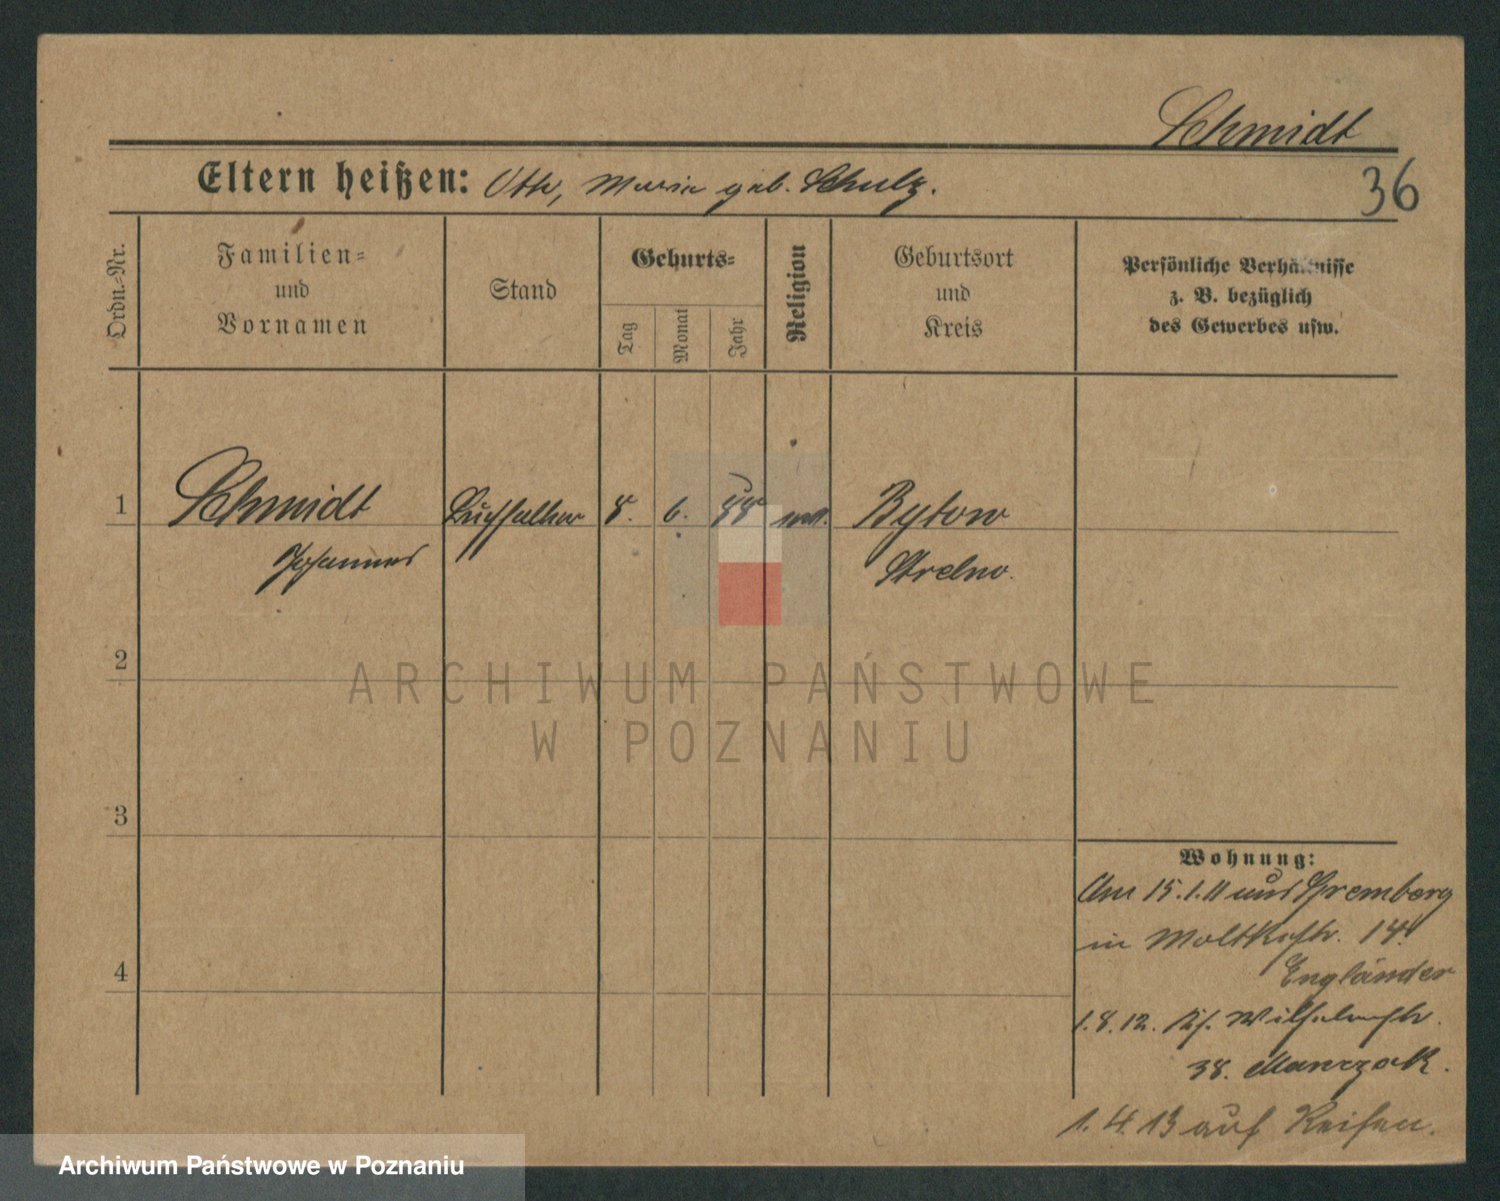 Schmidt
36
Eltern heißen: Otto, Maria geb. Schulz.
Ordn.=Nr.
Familien=
und
Vornamen
Stand
Geburts=
Tag
Monat
Jahr
Religion
Geburtsort
und
Kreis
Persönliche Verhältnisse
z. B. bezüglich
des Gewerbes usw.
1 Schmidt Buchhalter 8. 6. 88 Bytow
Johannes Strelno.
2
ARCHIWUM PAŃSTWOWE
W POZNANIU
3
Wohnung:
Am 15.1.11 aus Spremberg
in Moltkestr. 14.
Engländer
1.8.12. Wilhelmstr.
38. Manczak.
4
1.4.13 auf Reisen.
Archiwum Państwowe w Poznaniu